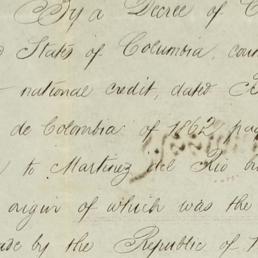 By a Decree of
States of Columbia,
national credit, dated
de Colombia of 1862
to Martinez del Rio
origin of which was the
by the Republic of